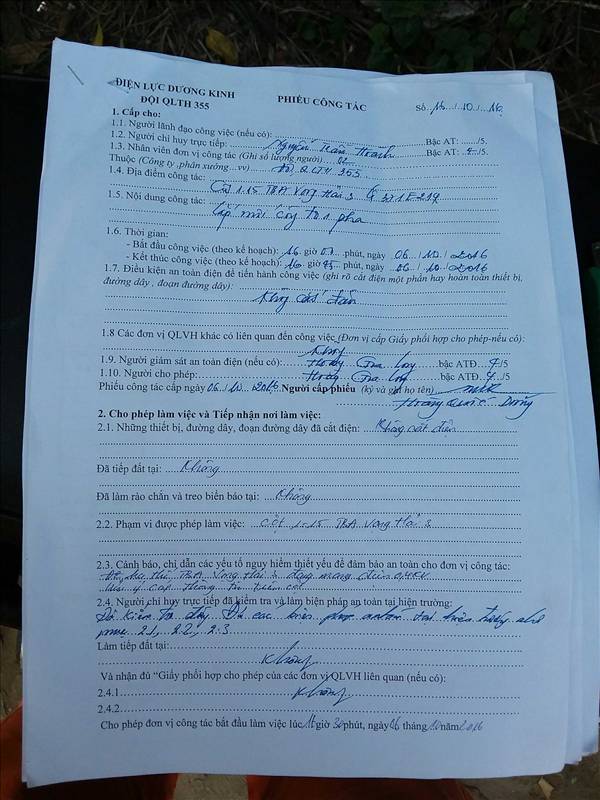 ĐIỆN LỰC DƯƠNG KINH
ĐỘI QLTH 355
PHIẾU CÔNG TÁC
Số: / 10 /
1. Cấp cho:
1.1. Người lãnh đạo công việc (nếu có): Bậc AT: /5.
1.2. Người chỉ huy trực tiếp: Nguyễn Trần Bậc AT: 4 /5.
1.3. Nhân viên đơn vị công tác (Ghi số lượng người) 02
Thuộc (Công ty ,phân xưởng…vv) Đội QLTH 355
1.4. Địa điểm công tác:
Cột 1.15 TBA Vọng Hải 3
1.5. Nội dung công tác:
Lắp mới công tơ 1 pha
1.6. Thời gian:
- Bắt đầu công việc (theo kế hoạch): 16 giờ phút, ngày 06 / 10 / 2016
- Kết thúc công việc (theo kế hoạch): 16 giờ 45 phút, ngày 06 / 10 / 2016
1.7. Điều kiện an toàn điện để tiến hành công việc (ghi rõ cắt điện một phần hay hoàn toàn thiết bị,
đường dây , đoạn đường dây):
Không cắt điện
1.8 Các đơn vị QLVH khác có liên quan đến công việc (Đơn vị cấp Giấy phối hợp cho phép-nếu có):
Không
1.9. Người giám sát an toàn điện (nếu có): Hoàng Gia Long bậc ATĐ 4 /5
1.10. Người cho phép: Hoàng Gia Long bậc ATĐ 4 /5
Phiếu công tác cấp ngày 06 / 10 / 2016 Người cấp phiếu (ký và ghi họ tên)
Hoàng Dương
2. Cho phép làm việc và Tiếp nhận nơi làm việc:
2.1. Những thiết bị, đường dây, đoạn đường dây đã cắt điện: Không cắt điện
Đã tiếp đất tại: Không
Đã làm rào chắn và treo biển báo tại: Không
2.2. Phạm vi được phép làm việc: Cột 1.15 TBA Vọng Hải 3
2.3. Cảnh báo, chỉ dẫn các yếu tố nguy hiểm thiết yếu để đảm bảo an toàn cho đơn vị công tác:
TBA Vọng Hải 3 đang mang điện 0,4KV
Lưu ý cáp thông tin trên cột
2.4. Người chỉ huy trực tiếp đã kiểm tra và làm biện pháp an toàn tại hiện trường:
Đã kiểm tra đầy đủ các biện pháp an toàn tại hiện trường như
mục 2.1, 2.2, 2.3
Làm tiếp đất tại:
Không
Và nhận đủ “Giấy phối hợp cho phép của các đơn vị QLVH liên quan (nếu có):
2.4.1 Không
2.4.2
Cho phép đơn vị công tác bắt đầu làm việc lúc giờ 30 phút, ngày 06 tháng 10 năm 2016